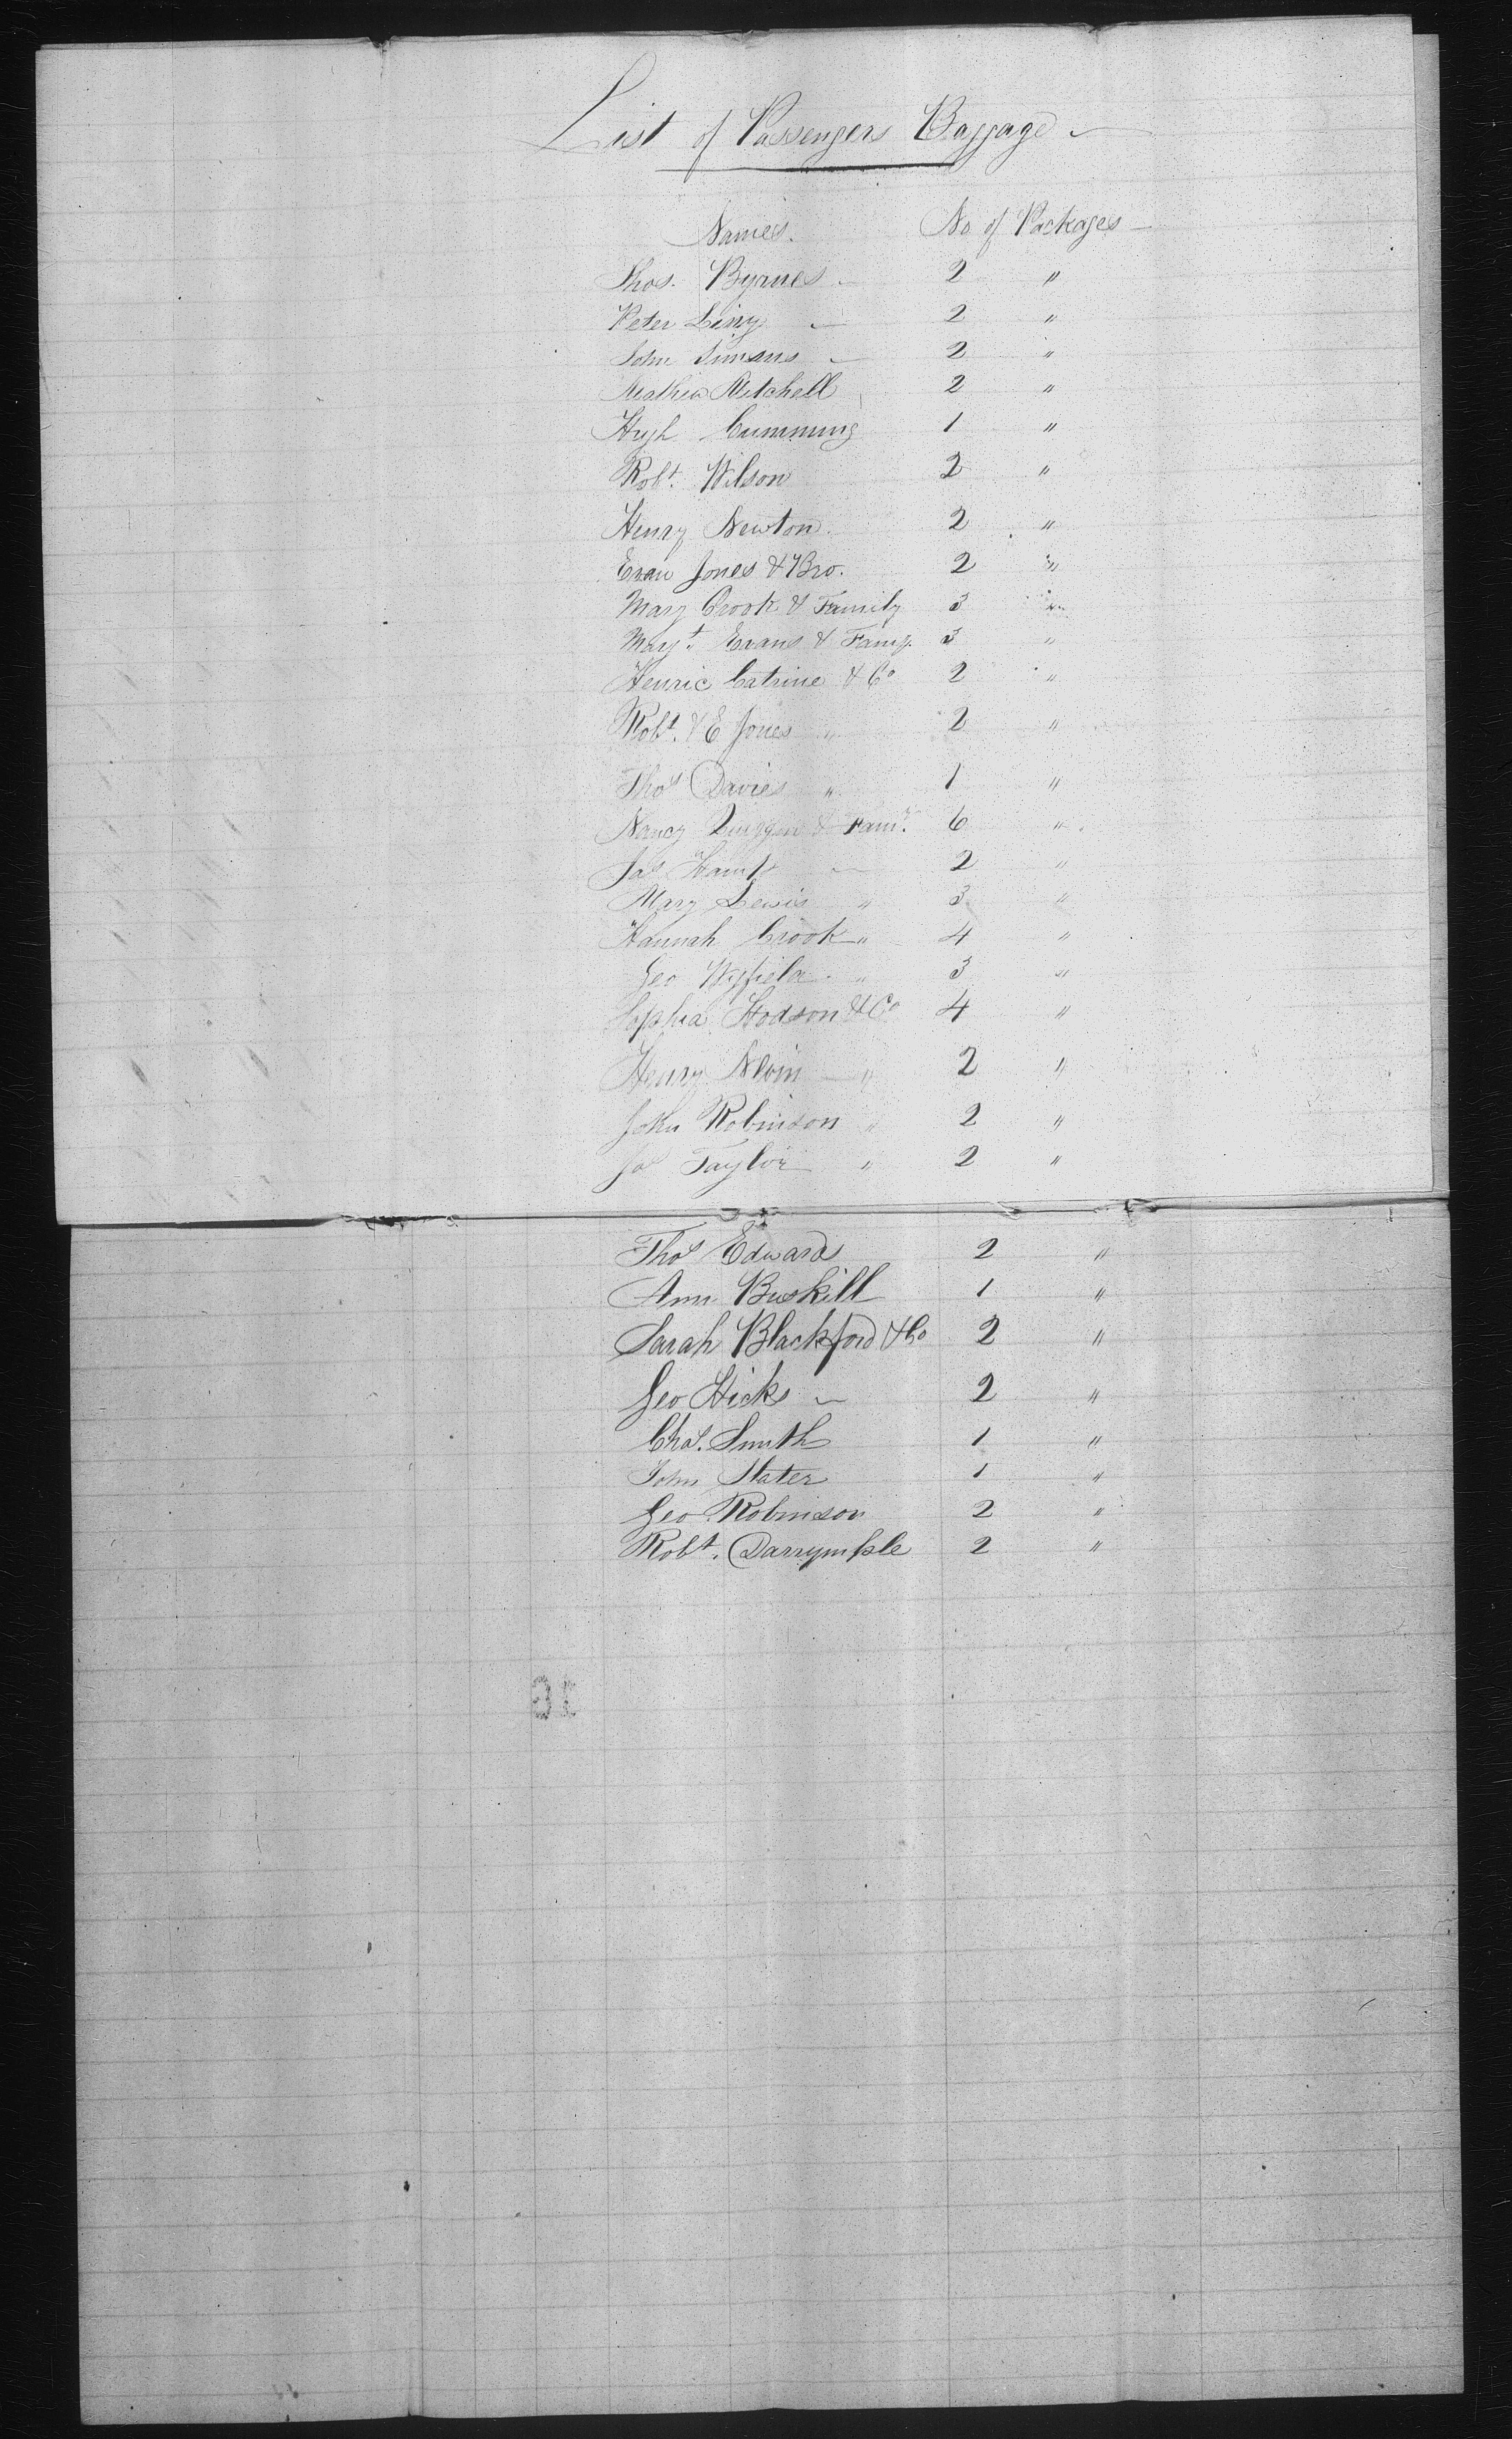 List of Passengers Baggage
Names. No of Packages
Thos. Byrnes 2 "
Peter 2 "
John Simans 2 "
Mathew Mitchell 2 "
Hugh Cumming 1 "
Robt. Wilson 2 "
Henry Newton. 2 "
Evan Jones & Bro. 2 "
Mary Crook & Family 3 "
Mayt. Evans & Famy. 3 "
Henric Catrine & Co 2 "
Robt. & E Jones " 2 "
Thos Davies " 1 "
Nancy & Famy. 6 "
Jas 2 "
Mary Lewis " 3 "
Hannah Crook " 4 "
Geo " 3 "
Sophia Hodson & Co 4 "
Henry " 2 "
John Robinson " 2 "
Jas Taylor " 2 "
Thos Edwards 2 "
Ann Buskill 1 "
Sarah Blackford & Co 2 "
Geo Hicks 2 "
Chas. Smith 1 "
John Slater 1 "
Geo Robinson 2 "
Robt. Darrymple 2 "